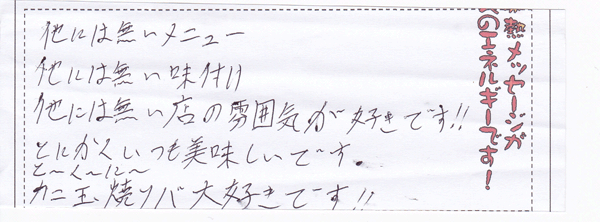 他には無いメニュー
他には無い味付け
他には無い店の雰囲気が好きです!!
とにかくいつも美味しいです。
と〜く〜に〜
カニ玉焼リバ大好きです!!
熱メッセージが
のエネルギーです!